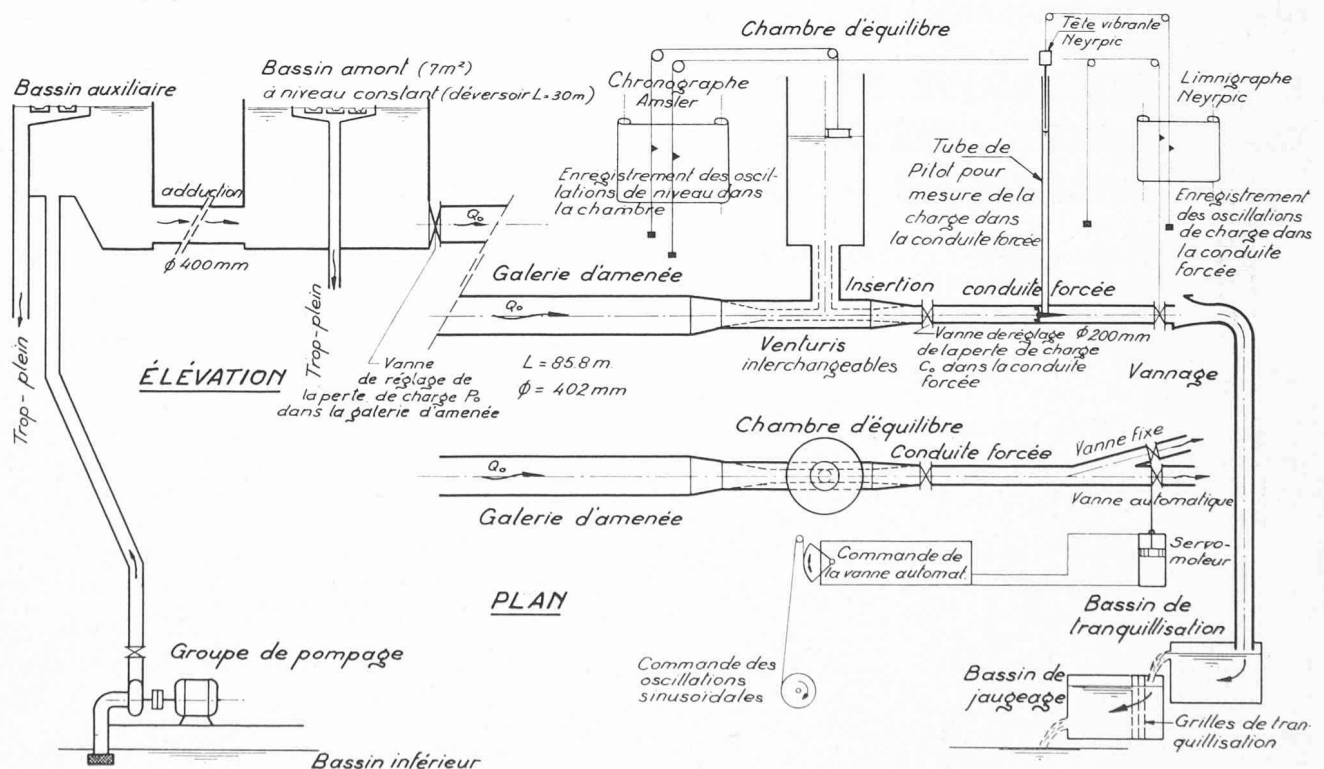 Bassin auxiliaire
Bassin amont (7m²)
à niveau constant (déversoir L=30m)
Chambre d'équilibre
Chronographe
Amsler
Tête vibrante
Neyrpic
Limnigraphe
Neyrpic
Enregistrement des oscil-
lations de niveau dans
la chambre
Tube de
Pitot pour
mesure de la
charge dans
la conduite forcée
Enregistrement
des oscillations
de charge dans
la conduite
forcée
adduction
ϕ 400mm
Q₀
Trop-plein
Trop-plein
Galerie d'amenée
Insertion
conduite forcée
Q₀
Venturis
interchangeables
Vanne de réglage
de la perte de charge
C₀ dans la conduite
forcée
ϕ 200mm
Vannage
ÉLÉVATION
Vanne
de réglage de
la perte de charge P₀
dans la galerie d'amenée
L = 85.8 m.
ϕ = 402 mm
Chambre d'équilibre
Conduite forcée
Vanne fixe
Q₀
Galerie d'amenée
Vanne automatique
Commande de
la vanne automat.
Servo-
moteur
PLAN
Groupe de pompage
Commande des
oscillations
sinusoïdales
Bassin de
tranquillisation
Bassin de
jaugeage
Grilles de tran-
quillisation
Bassin inférieur